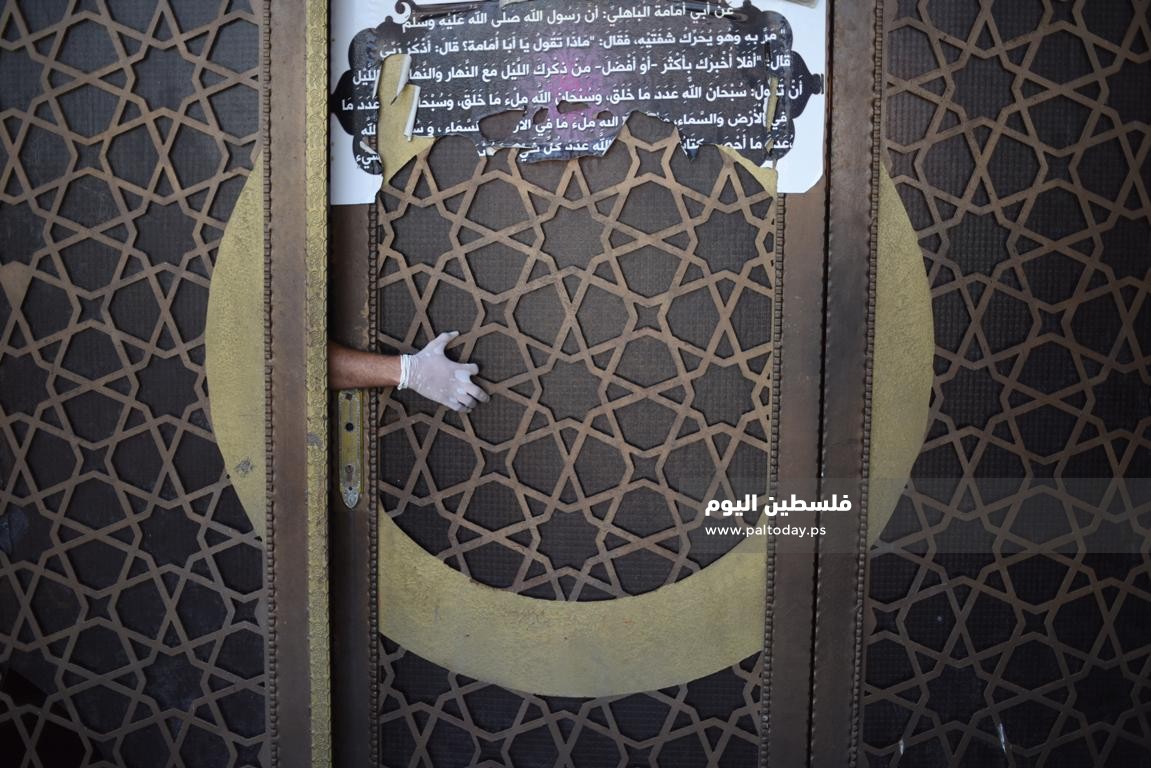 عن أبي أمامة الباهلي: أن رسول الله صلى الله عليه وسلم
مر به وهو يحرك شفتيه، فقال: "ماذا تقول يا أبا أمامة؟ قال: أذكر ربي
قال: "أفلا أخبرك بأكثر -أو أفضل- من ذكرك الليل مع النهار والنهار الليل
أن تقول: سبحان الله عدد ما خلق، وسبحان الله ملء ما خلق، وسبحا عدد ما
في الأرض والسماء، الله ملء ما في الأر السماء، و الله
عدد ما الله عدد كل شيء
فلسطين اليوم
www.paltoday.ps